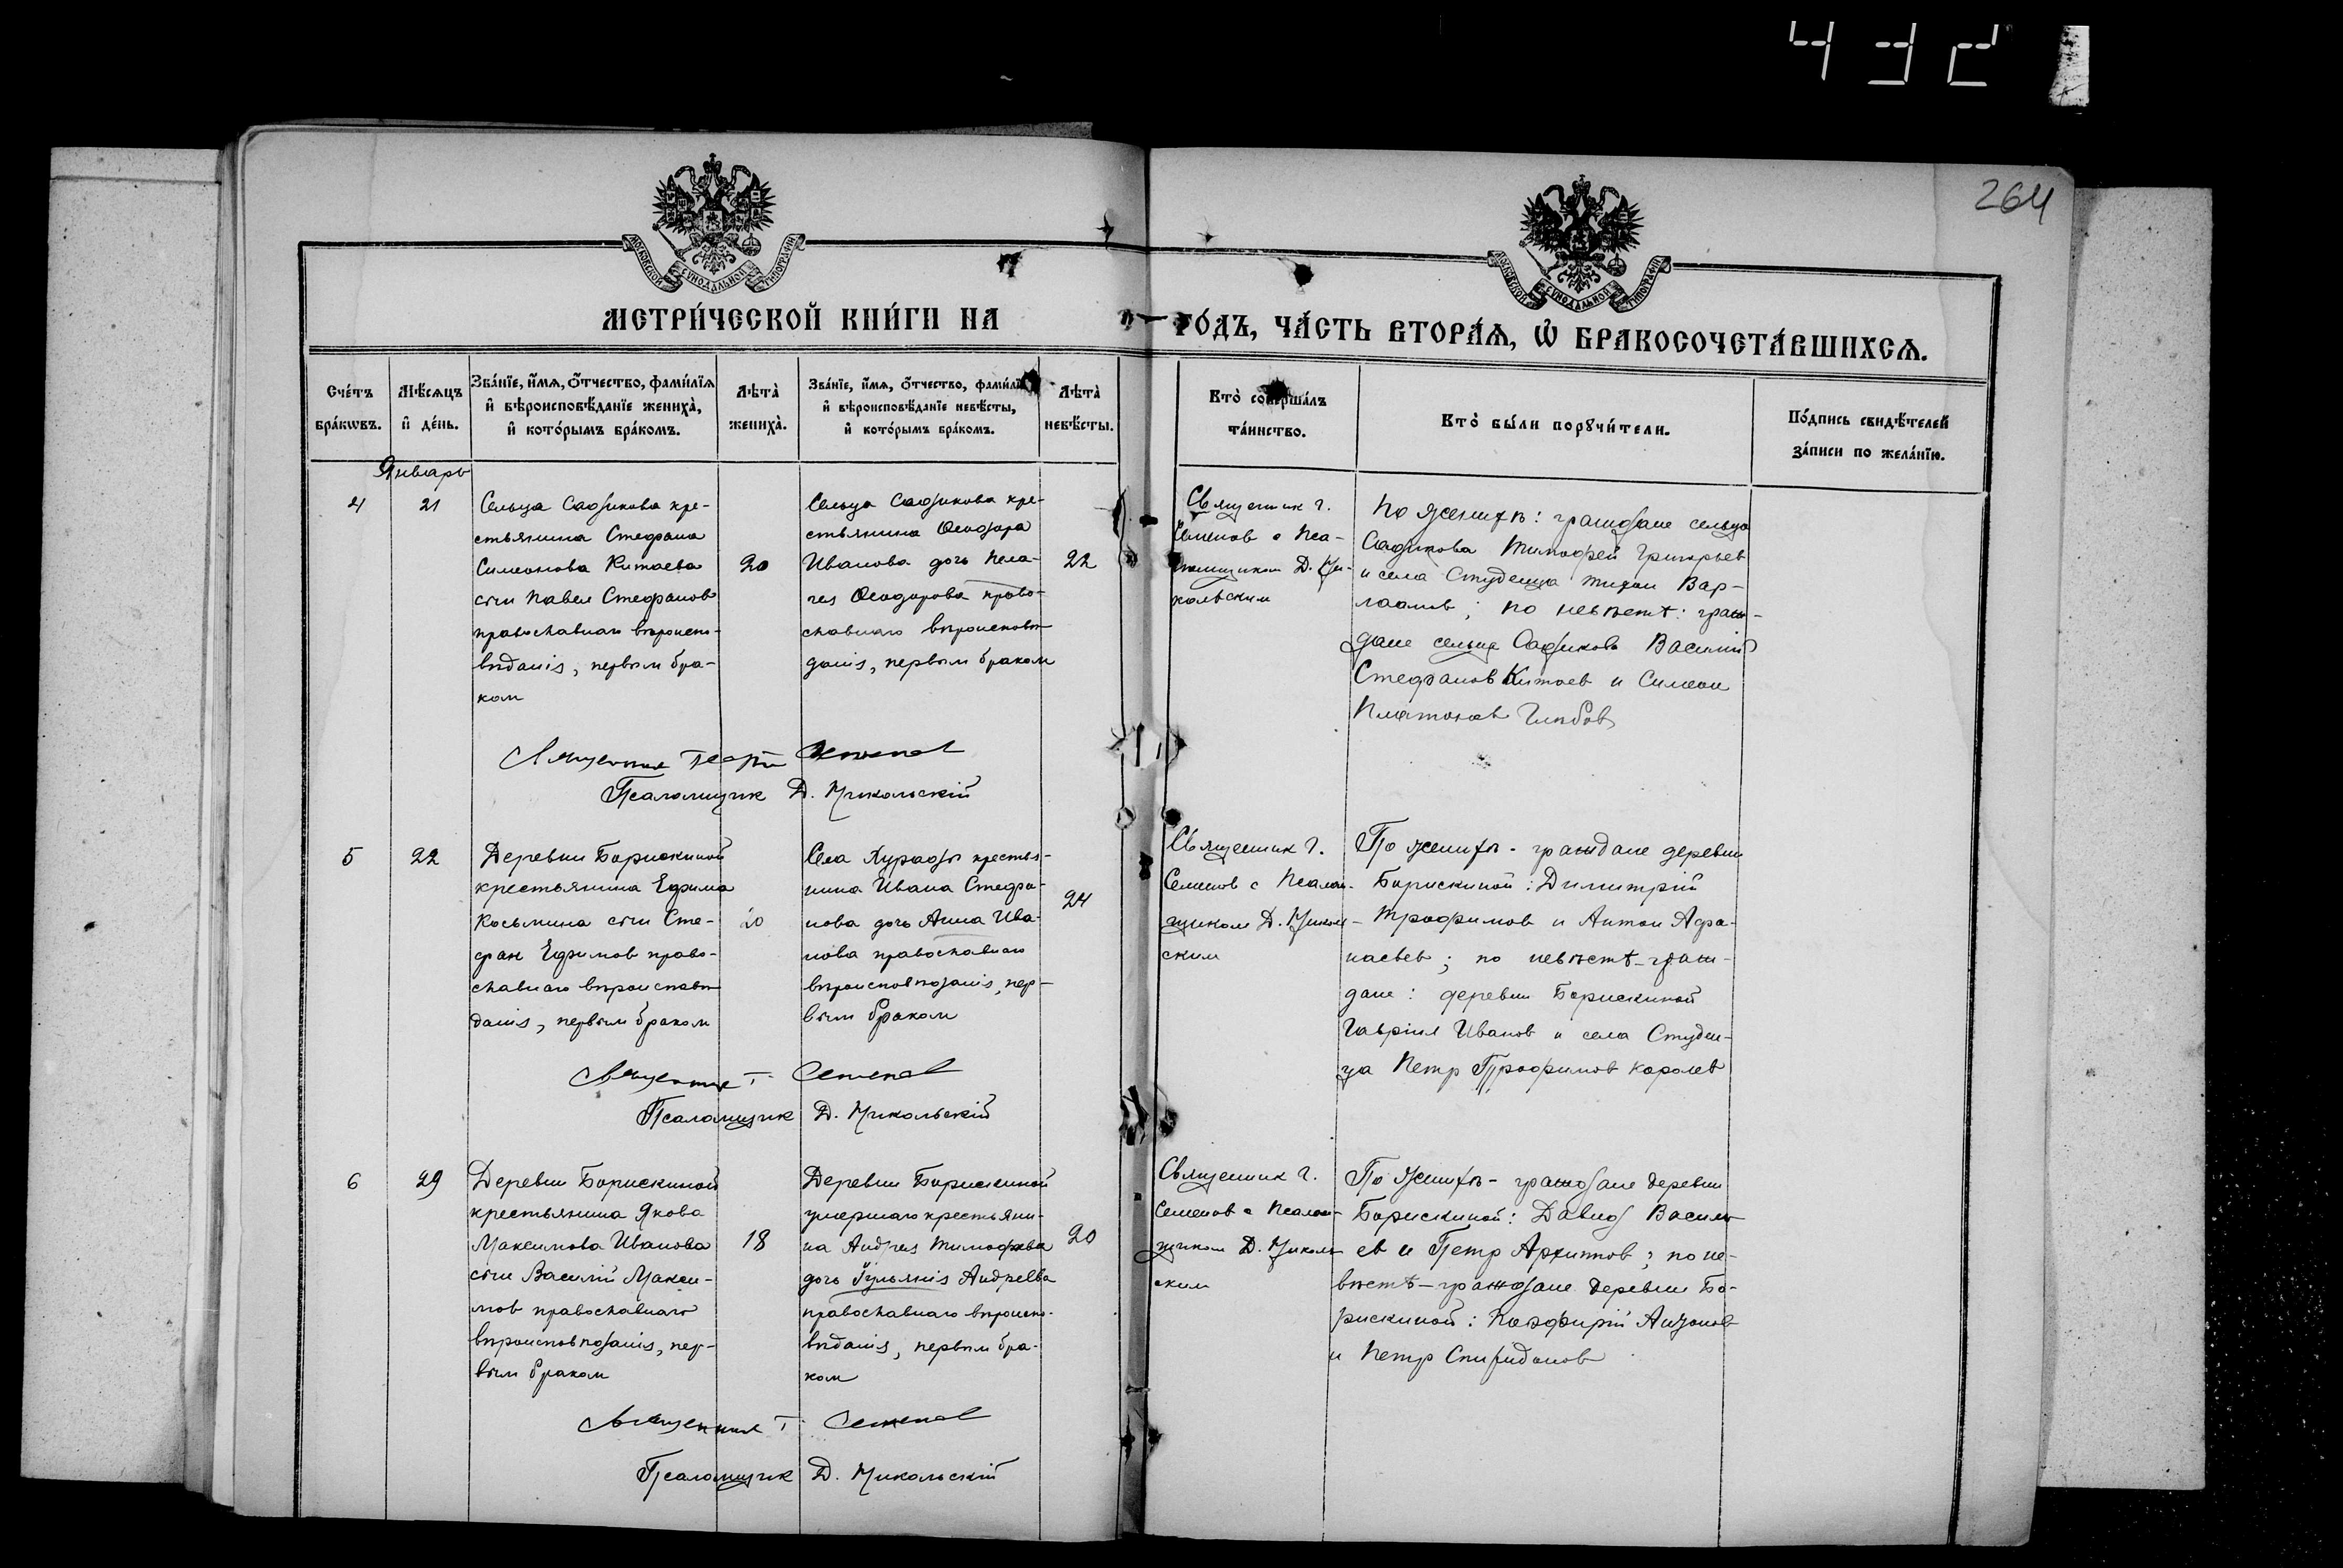 432
264
МОСКОВСКОЙ СУНОДАЛЬНОЙ ТИПОГРАФІИ
МОСКОВСКОЙ СУНОДАЛЬНОЙ ТИПОГРАФІИ
МЕТРИ́ЧЕСКОЙ КНИ́ГИ НА
ГО́ДЪ, ЧА́СТЬ ВТОРА́Ѧ, Ѡ БРАКОСОЧЕТА́ВШИХСѦ.
Сче́тъ
бра́кѡвъ.
Мѣ́сѧцъ
и де́нь.
Зва́нїе, и́мѧ, о́тчество, фами́лїѧ
и вѣроисповѣ́данїе жениха̀,
и кото́рымъ бра́комъ.
Лѣта̀
жениха̀.
Зва́нїе, и́мѧ, о́тчество, фами́лїѧ
и вѣроисповѣ́данїе невѣ́сты,
и кото́рымъ бра́комъ.
Лѣта̀
невѣ́сты.
Кто̀ соверша́лъ
та́инство.
Кто̀ бы́ли порꙋчи́тели.
По́дпись свидѣ́телей
за́писи по жела́нїю.
Январь
4
21
Сельца Садикова кре-
стьянина Стефана
Симеонова Китаева
сын Павел Стефанов
православнаго вѣроиспо-
вѣданія, первым бра-
ком
20
Сельца Садикова кре-
стьянина Ѳеодора
Иванова дочь Пела-
гея Ѳеодорова право-
славнаго вѣроисповѣ-
данія, первым браком
22
Священник Г.
Семенов с Пса-
ломщиком Д. Ни-
кольским
По женихѣ: граждане сельца
Садикова Тимофей Григорьев
и села Студенца Тихон Вар-
лаамов; по невѣстѣ: граж-
дане сельца Садикова Василий
Стефанов Китаев и Симеон
Платонов Глѣбов
Священник Георгій Семенов
Псаломщик Д. Никольскій
5
22
Деревни Борискиной
крестьянина Ефима
Косьмина сын Сте-
фан Ефимов право-
славнаго вѣроисповѣ-
данія, первым браком
20
Села Курафы крестья-
нина Ивана Стефа-
нова дочь Анна Ива-
нова православнаго
вѣроисповѣданія, пер-
вым браком
24
Священник Г.
Семенов с Псалом-
щиком Д. Николь-
ским
По женихѣ - граждане деревни
Борискиной: Димитрій
Трофимов и Антон Афа-
насьев; по невѣстѣ - граж-
дане: деревни Борискиной
Гавріил Иванов и села Студен-
ца Петр Трофимов Королев
Священник Г. Семенов
Псаломщик Д. Никольскій
6
29
Деревни Борискиной
крестьянина Якова
Максимова Иванова
сын Василій Макси-
мов православнаго
вѣроисповѣданія, пер-
вым браком
18
Деревни Борискиной
умершаго крестьяни-
на Андрея Тимофеева
дочь Іульянія Андреева
православнаго вѣроиспо-
вѣданія, первым бра-
ком
20
Священник Г.
Семенов с Псалом-
щиком Д. Николь-
ским
По женихѣ - граждане деревни
Борискиной: Давид Василь-
ев и Петр Архиппов; по не-
вѣстѣ - граждане деревни Бо-
рискиной: Порфирій Антонов
и Петр Спиридонов
Священник Г. Семенов
Псаломщик Д. Никольскій